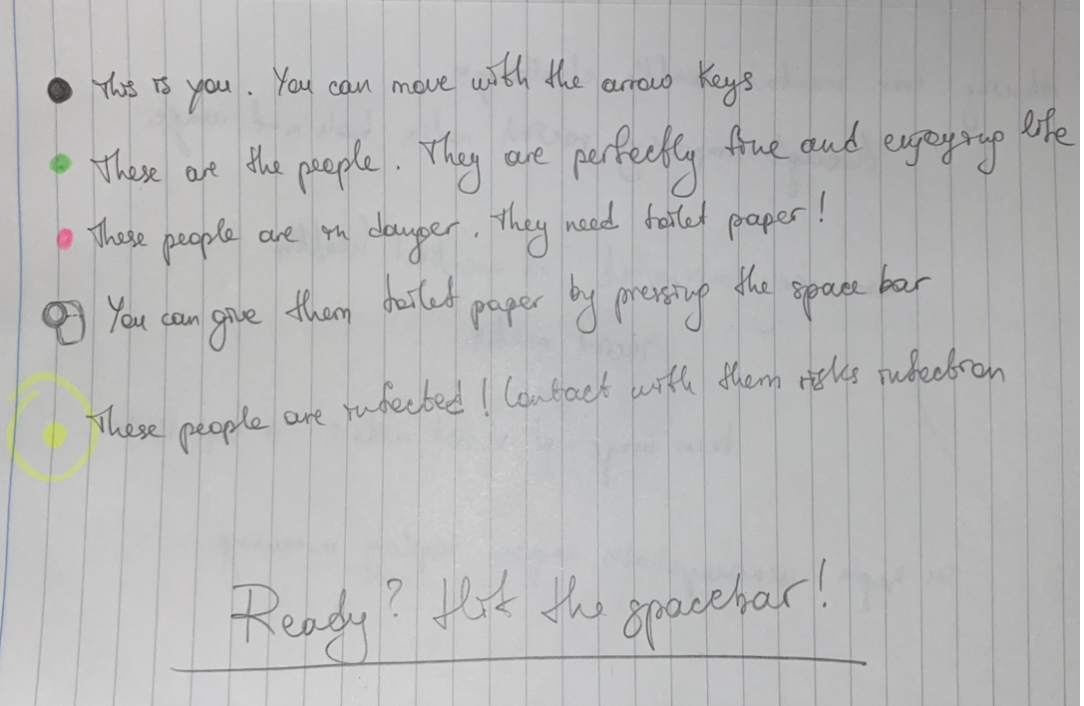 This is you. You can move with the arrow keys
These are the people. They are perfectly fine and enjoying life
These people are in danger. They need toilet paper!
You can give them toilet paper by pressing the space bar
These people are infected! Contact with them risks infection
Ready? Hit the spacebar!